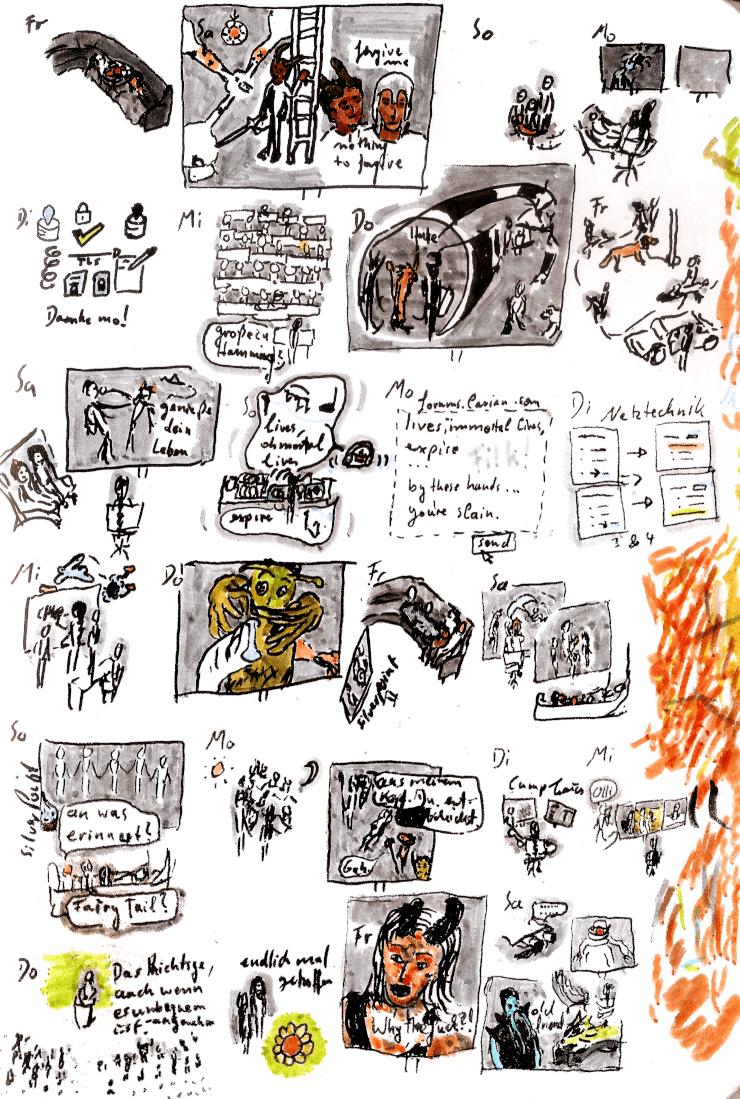 Fr
Sa
forgive
me
nothing
to forgive
So
Mo
Di
TLS
Danke mo!
Mi
Do
Fr
Sa
genieße
dein
Leben
So
lives,
oh mortal
lives
expire
Mo
forums.larian.com
lives, immortal lives,
expire
...
by these hands...
you're slain.
send
Di
Netztechnik
3 & 4
Mi
Do
Fr
silverpoint
II
Sa
So
silverpoint
an was
erinnert?
Fairy Tail?
Mo
aus meinem
Geh
Di
Mi
Olli
Do
Das Richtige,
auch wenn
es unbequem
ist - angenehm
endlich mal
getroffen
Fr
Why the fuck?!
Sa
old
friend